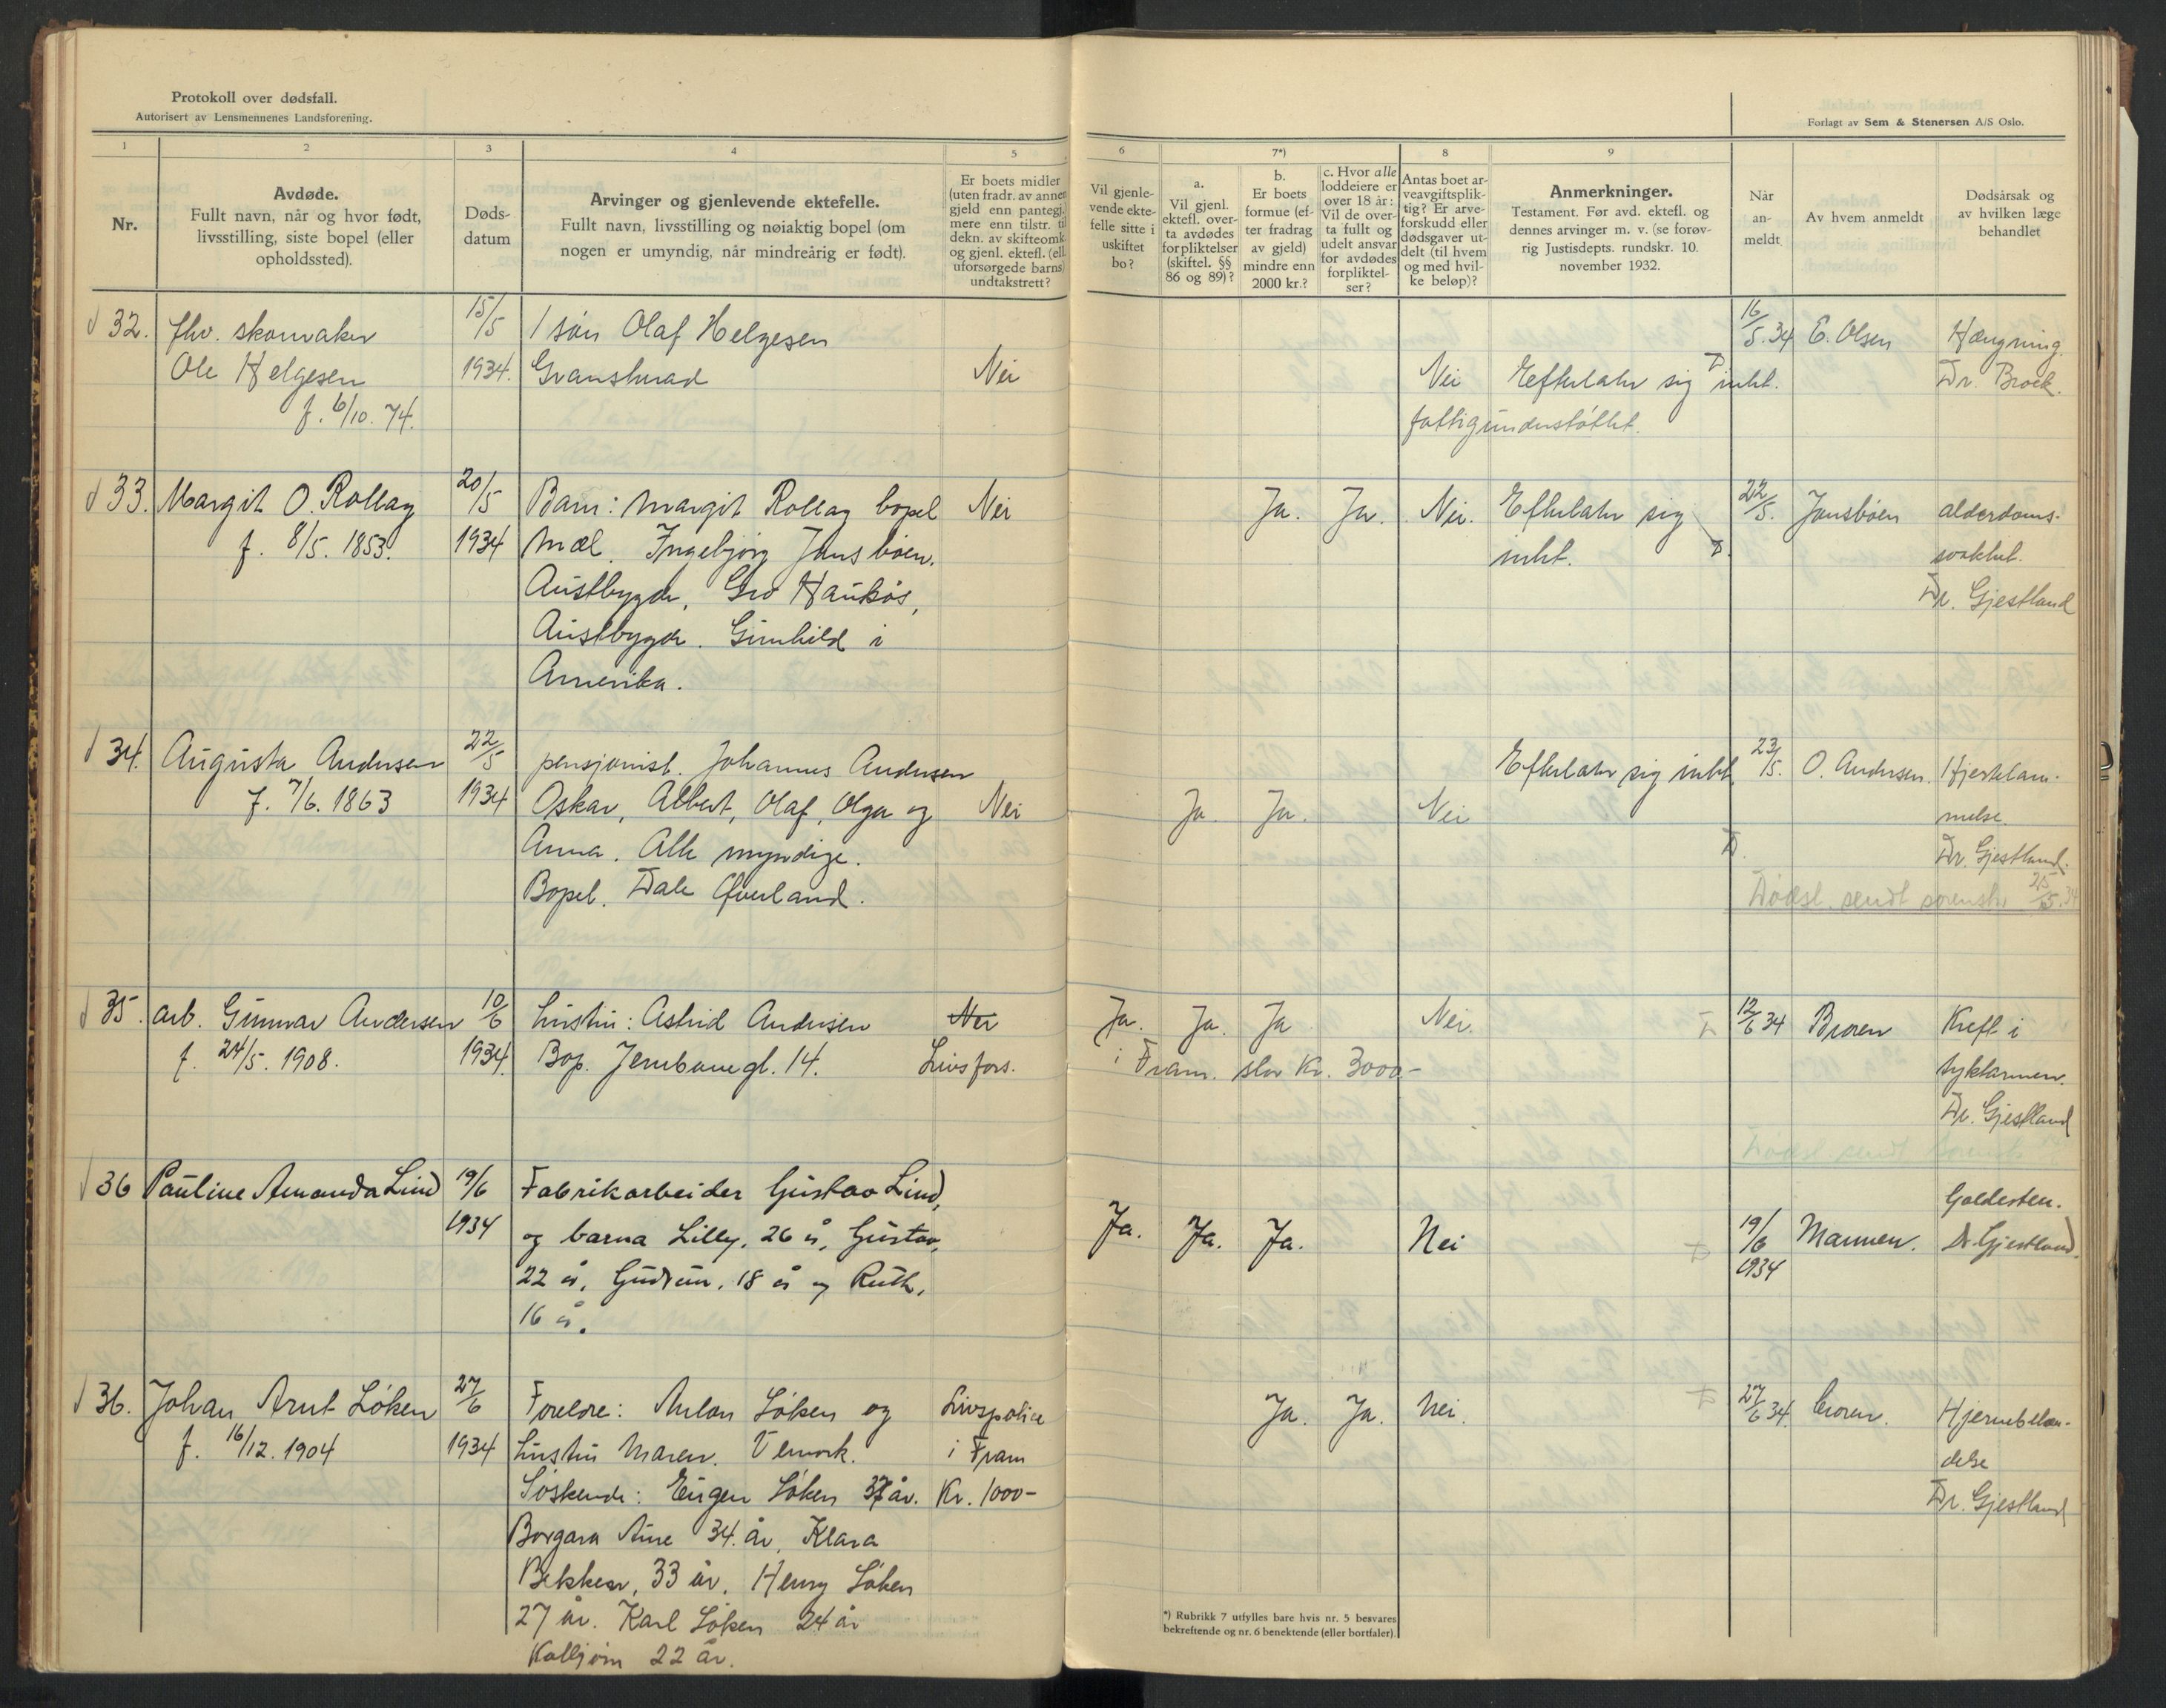 Protokoll over dødsfall.
Autorisert av Lensmennenes Landsforening.
Forlagt av Sem & Stenersen A/S Oslo.
1
2
3
4
5
6
7*)
8
9
Nr.
Avdøde.
Fullt navn, når og hvor født,
livsstilling, siste bopel (eller
opholdssted).
Døds-
datum
Arvinger og gjenlevende ektefelle.
Fullt navn, livsstilling og nøiaktig bopel (om
nogen er umyndig, når mindreårig er født).
Er boets midler
(uten fradr. av annen
gjeld enn pantegj.
mere enn tilstr. til
dekn. av skifteomk
og gjenl. ektefl. (ell.
uforsørgede barns)
undtakstrett?
Vil gjenle-
vende ekte-
felle sitte i
uskiftet
bo?
a.
Vil gjenl.
ektefl. over-
ta avdødes
forpliktelser
(skiftel. §§
86 og 89)?
b.
Er boets
formue (ef-
ter fradrag
av gjeld)
mindre enn
2000 kr.?
c. Hvor alle
loddeiere er
over 18 år:
Vil de over-
ta fullt og
udelt ansvar
for avdødes
forpliktel-
ser?
Antas boet ar-
veavgiftsplik-
tig? Er arve-
forskudd eller
dødsgaver ut-
delt (til hvem
og med hvil-
ke beløp)?
Anmerkninger.
Testament. Før avd. ektefl. og
dennes arvinger m. v. (se forøv-
rig Justisdepts. rundskr. 10.
november 1932.
Når
an-
meldt.
Av hvem anmeldt
Dødsårsak og
av hvilken læge
behandlet
32. fhv. skomaker 15/5 1 søn Olaf Helgesen 16/5.34 E. Olsen Hængning.
Ole Helgesen 1934. Gransherad Nei Nei Efterlater sig intet. Dr. Brock.
f. 6/10. 74. fattigunderstøttet.
33. Margit O. Rollag 20/5 Barn: Margit Rollag bopel Nei Ja. Ja. Nei. Efterlater sig 22/5. Jonsbøen alderdoms-
f. 8/5. 1853. 1934 Mæl. Ingebjørg Jonsbøen. intet. svakhet.
Austbygde, Gro Haukås, Dr. Gjestland
Austbygde. Gunhild i
Amerika.
34. Augusta Andersen 22/5 pensjonist. Johannes Andersen Efterlater sig intet 23/5. O. Andersen. Hjertelam-
f. 7/6. 1863 1934 Oskar, Albert, Olaf, Olga og Nei Ja. Ja. Nei melse.
Anna. Alle myndige. Dr. Gjestland.
Bopel. Dale Øverland. Dødsf. sendt sorenskr. 25/5.34
35. arb. Gunnar Andersen 10/6 hustru: Astrid Andersen Nei Ja. Ja. Ja Nei. 12/6 34 Broren Kreft i
f. 24/5. 1908. 1934. Bop. Jernbanegt. 14. Livsfors. i Fram. stor Kr. 3000.- tyktarmen.
Dr. Gjestland
36 Pauline Amanda Lind 19/6 Fabrikarbeider Gustav Lind, Galdesten.
1934 og barna Lilly, 26 å, Gustav, Ja. Ja. Ja. Nei 19/6 Mannen. Dr. Gjestland.
22 å, Gudrun, 18 å og Ruth, 1934
16 å.
36. Johan Arnt Løken 27/6 Foreldre: Anton Løken og Livspolice Ja. Ja. Nei. 27/6 34. broren. Hjernebetæn-
f. 16/12. 1904 1934 hustru Maren. Vemork. i Fram delse
Søskende: Eugen Løken 37 år. Kr. 1000- Dr. Gjestland
34 år, Klara
Bekken, 33 år, Henry Løken
27 år. Karl Løken 24 år
22 år.
*) Rubrikk 7 utfylles bare hvis nr. 5 besvares
bekreftende og nr. 6 benektende (eller bortfaler).